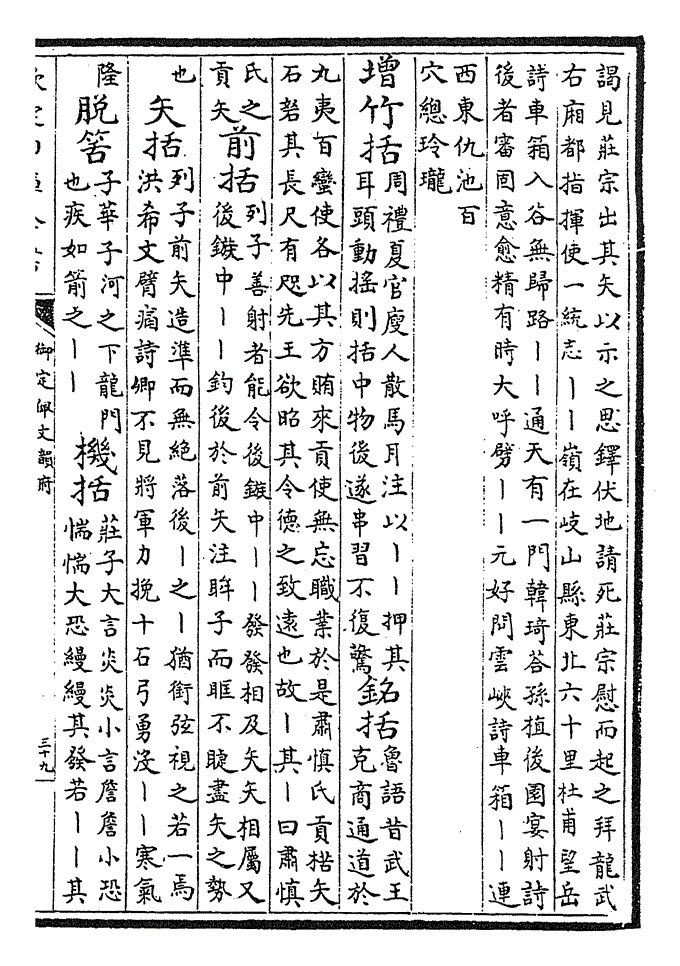 謁見莊宗出其矢以示之思鐸伏地請死莊宗慰而起之拜龍武
右廂都指揮使一統志丨丨嶺在岐山縣東北六十里杜甫望岳
詩車箱入谷無歸路丨丨通天有一門韓琦荅孫植後園宴射詩
後者審固意愈精有時大呼劈丨丨元好問雲峽詩車箱丨丨連
西東仇池百
穴總玲瓏
增竹括
周禮夏官廋人散馬耳注以丨丨押其
耳頭動搖則括中物後遂串習不復驚
銘括
魯語昔武王
克商通道於
九夷百蠻使各以其方賄來貢使無忘職業於是肅慎氏貢楛矢
石砮其長尺有咫先王欲昭其令德之致遠也故丨其丨曰肅慎
氏之
貢矢
前括
列子善射者能令後鏃中丨丨發發相及矢矢相屬又
後鏃中丨丨鈞後於前矢注眸子而眶不睫盡矢之勢
也
矢括
列子前矢造準而無絕落後丨之丨猶銜弦視之若一焉
洪希文臂痛詩卿不見將軍力挽十石弓勇没丨丨寒氣
隆
脱筈
子華子河之下龍門
也疾如箭之丨丨
機括
莊子大言炎炎小言詹詹小恐
惴惴大恐縵縵其發若丨丨其
御定佩文韻府
三十九